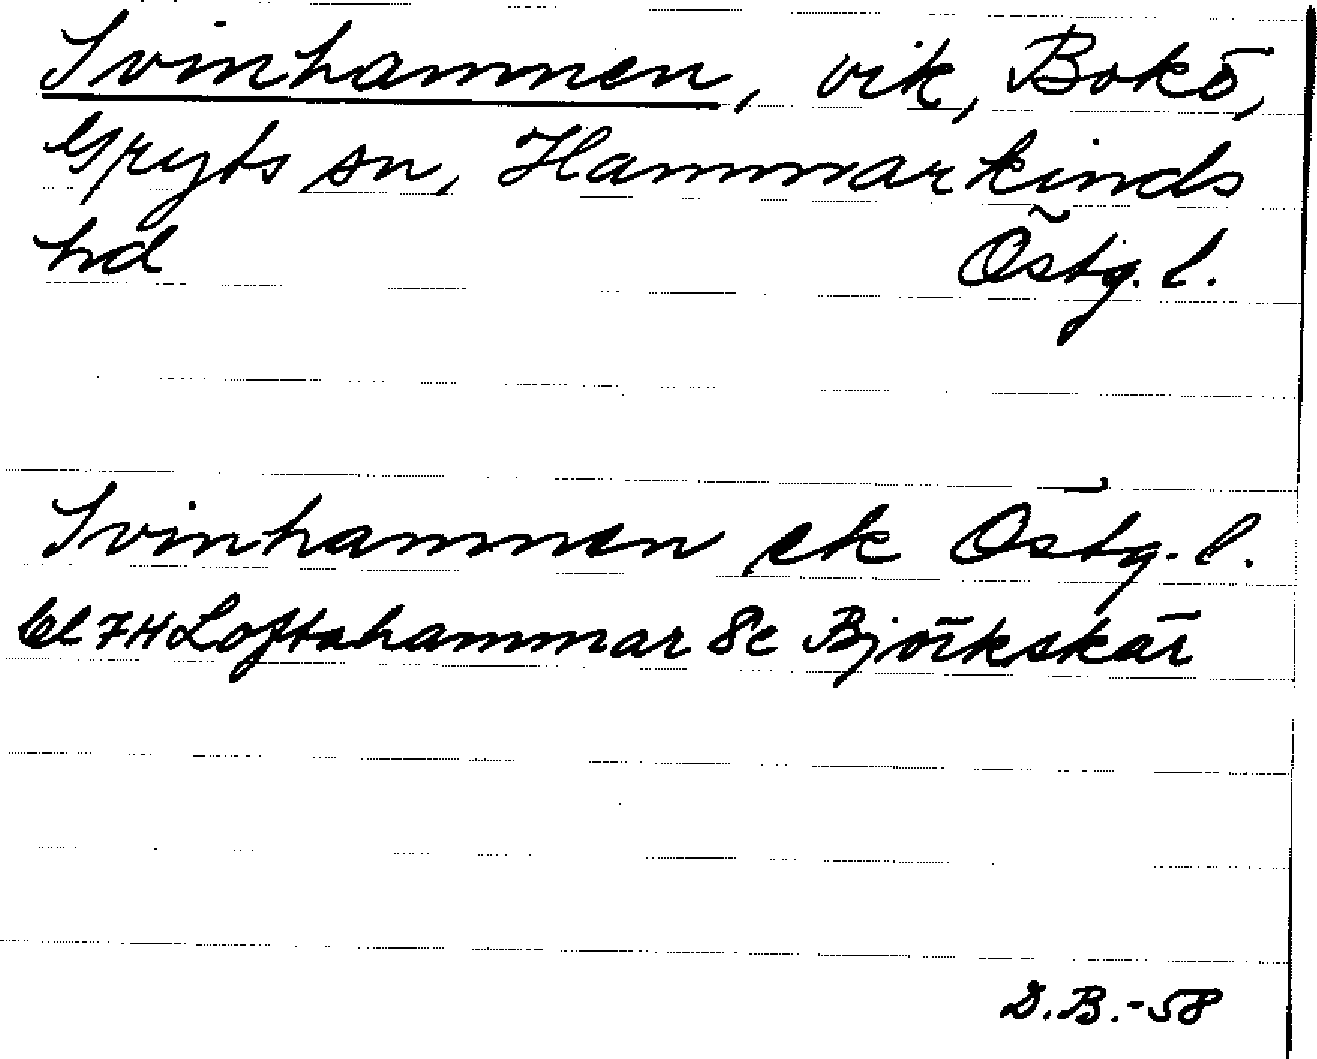 Svinhamnen, vik, Bokö,
Gryts sn, Hammarkinds
hd Östg. l.
Svinhamnen ek Östg. l.
bl 7H Loftahammar 8c Björkskär
D.B.-58